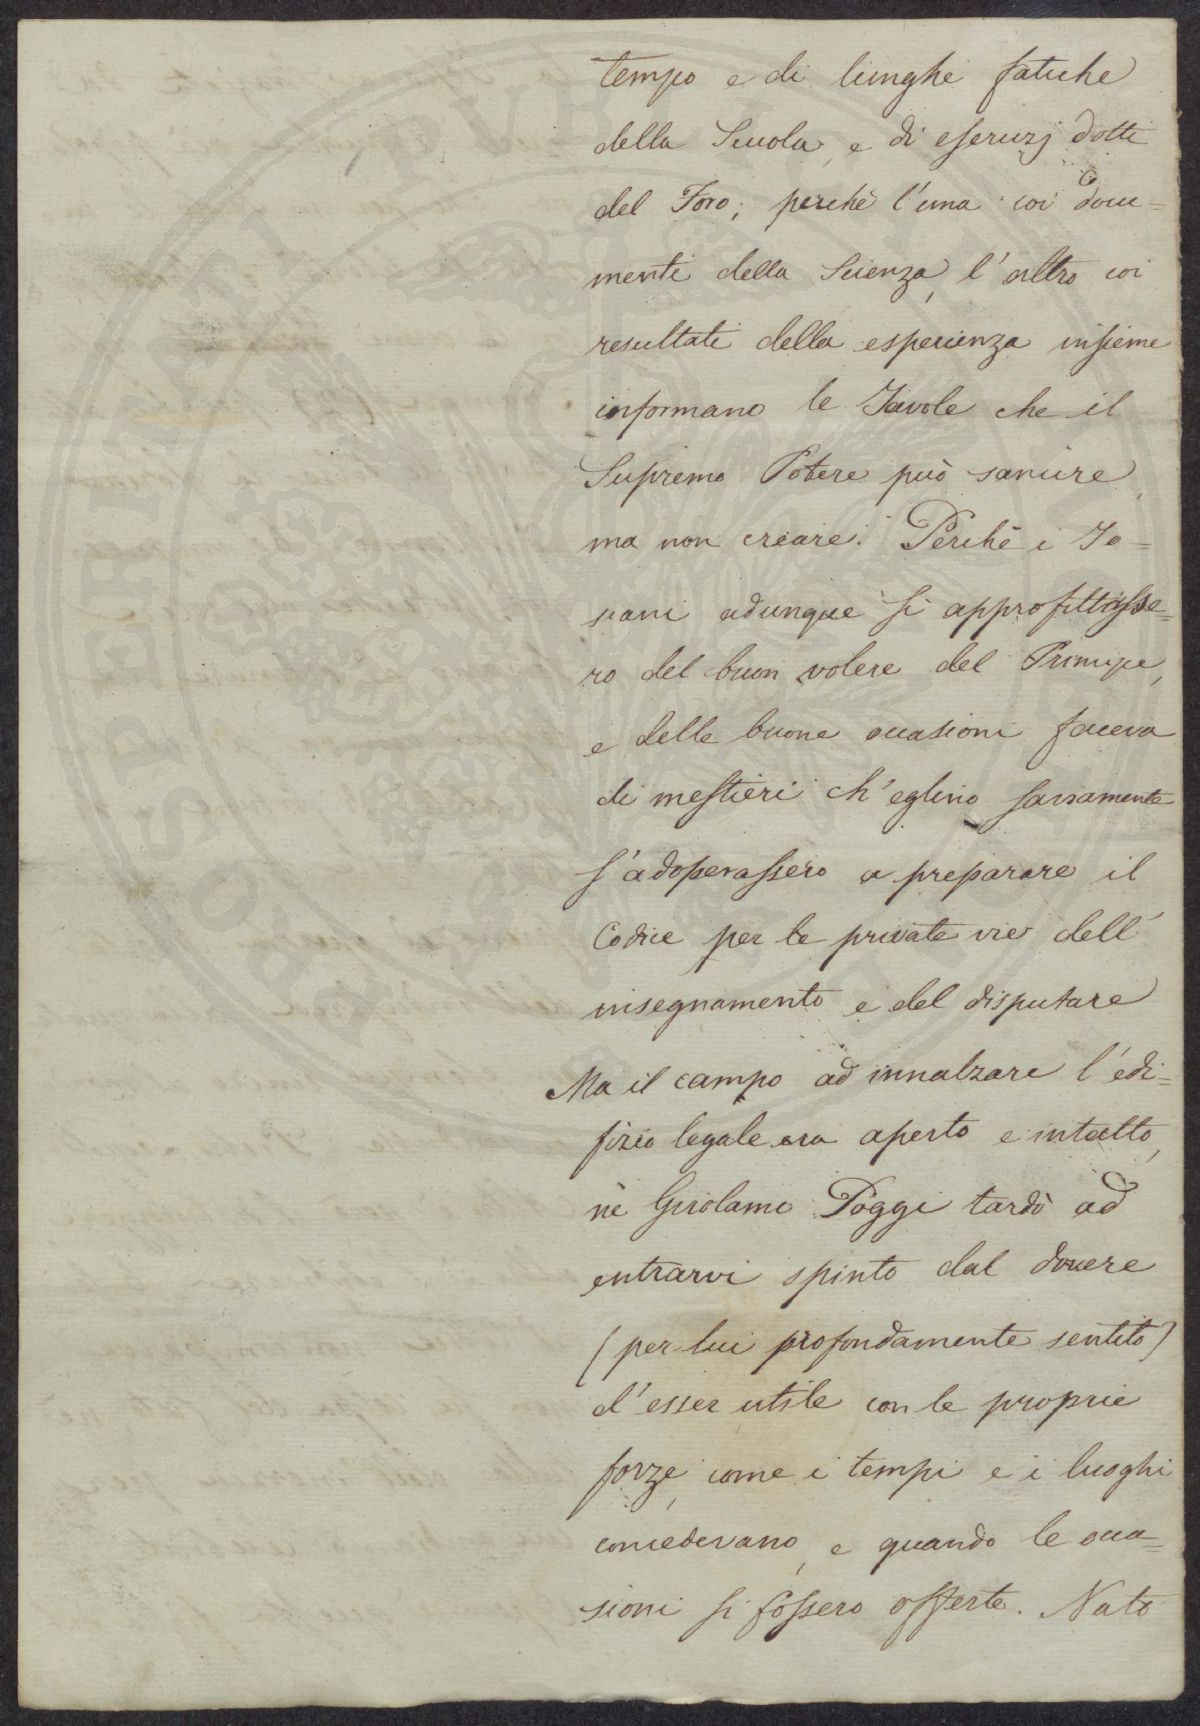 tempo e di lunghe fatiche
della Scuola, e di esercizj dotti
del Foro; perchè l'una coi docu=
menti della Scienza, l'altro coi
resultati della esperienza insieme
informano le Tavole che il
Supremo Potere può sancire,
ma non creare. Perchè i To=
scani adunque si approfittasse=
ro del buon volere del Principe,
e delle buone occasioni faceva
di mestieri ch'eglino saviamente
s'adoperassero a preparare il
Codice per le private vie dell'
insegnamento e del disputare
Ma il campo ad innalzare l'edi=
fizio legale era aperto e intatto,
nè Girolamo Poggi tardò ad
entrarvi spinto dal dovere
(per lui profondamente sentito)
d'esser utile con le proprie
forze, come i tempi e i luoghi
concedevano, e quando le occa=
sioni si fossero offerte. Nato